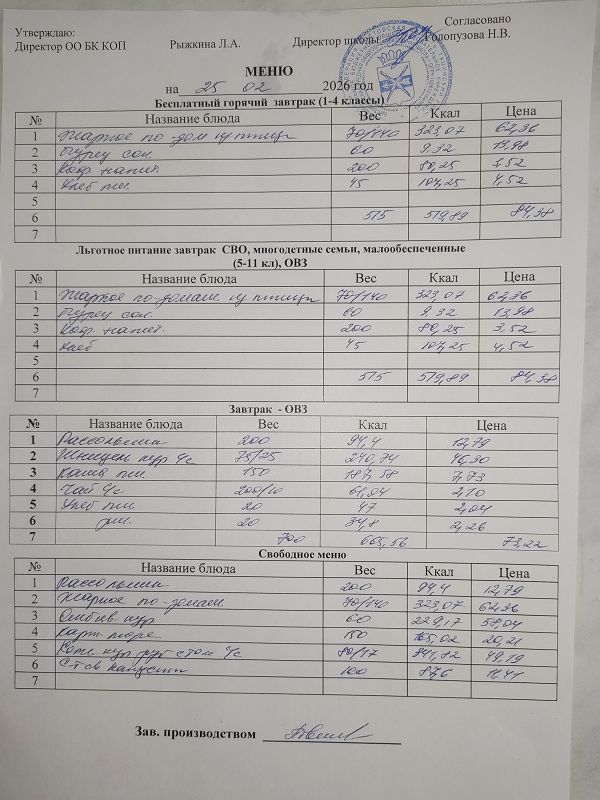 Согласовано
Утверждаю:
Директор ОО БК КОП Рыжкина Л.А. Директор школы Голопузова Н.В.
МЕНЮ
на 25 02 2026 год
Бесплатный горячий завтрак (1-4 классы)
№ Название блюда Вес Ккал Цена
1 Жаркое по-дом из птицы 70/140 323,07 62,36
2 Огурец сол. 60 9,32 13,98
3 Коф. напит. 200 80,25 3,52
4 Хлеб пш. 45 107,25 4,52
5
6 515 519,89 84,38
7
Льготное питание завтрак СВО, многодетные семьи, малообеспеченные
(5-11 кл), ОВЗ
№ Название блюда Вес Ккал Цена
1 Жаркое по-домаш из птицы 70/140 323,07 62,36
2 Огурец сол. 60 9,32 13,98
3 Коф. напит. 200 80,25 3,52
4 Хлеб 45 107,25 4,52
5
6 515 519,89 84,38
7
Завтрак - ОВЗ
№ Название блюда Вес Ккал Цена
1 Рассольник 200 94,4 12,79
2 Шницель кур 75/25 240,74
3 Каша пш. 150 187,58 7,73
4 Чай 200/10 61,04 2,10
5 Хлеб пш 20 47 2,04
6 рж. 20 34,8 2,26
7 700 665,56 73,22
Свободное меню
№ Название блюда Вес Ккал Цена
1 Рассольник 200 94,4 12,79
2 Жаркое по-домаш 70/140 323,07 62,36
3 Отбив. кур 60 229,17 58,04
4 Карт. пюре 150 165,02 20,21
5 Котл. кур 80/17 49,19
6 Ст св капусты 100 87,6 11,41
7
Зав. производством